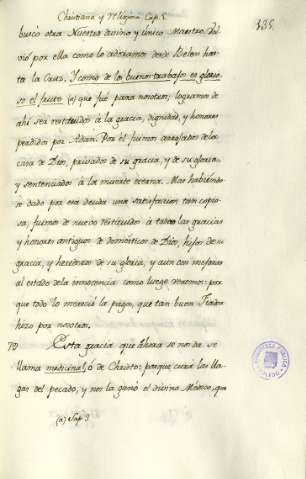 Christiana y Religiosa Cap. 5.
135.
buscó otro Nuestro divino y único Maestro. Vi-
vió por ella como lo adoramos desde Belen has-
ta la Cruz. Y como de los buenos trabajos es glorio-
so el fruto (a) que fué para nosotros, logramos de
ahí ser restituidos á la gracia, dignidad, y honores
perdidos por Adan. Por él fuimos arrojados de la
casa de Dios, privados de su gracia, y de su gloria,
y sentenciados á la muerte eterna. Mas habiendo-
se dado por esa deuda una satisfaccion tan copio-
sa, fuimos de nuevo restituidos á todas las gracias
y honores antiguos de domésticos de Dios, hijos de su
gracia, y herederos de su gloria, y aun con mejoras
al estado de la inocencia como luego veremos: por
que todo lo mereció la paga, que tan buen Fiador
hizo por nosotros.
79 Esta gracia que ahora se nos da se
llama medicinal, ó de Christo: porque cura las lla-
gas del pecado, y nos la ganó el divino Médico, que
(a) Sap. 3